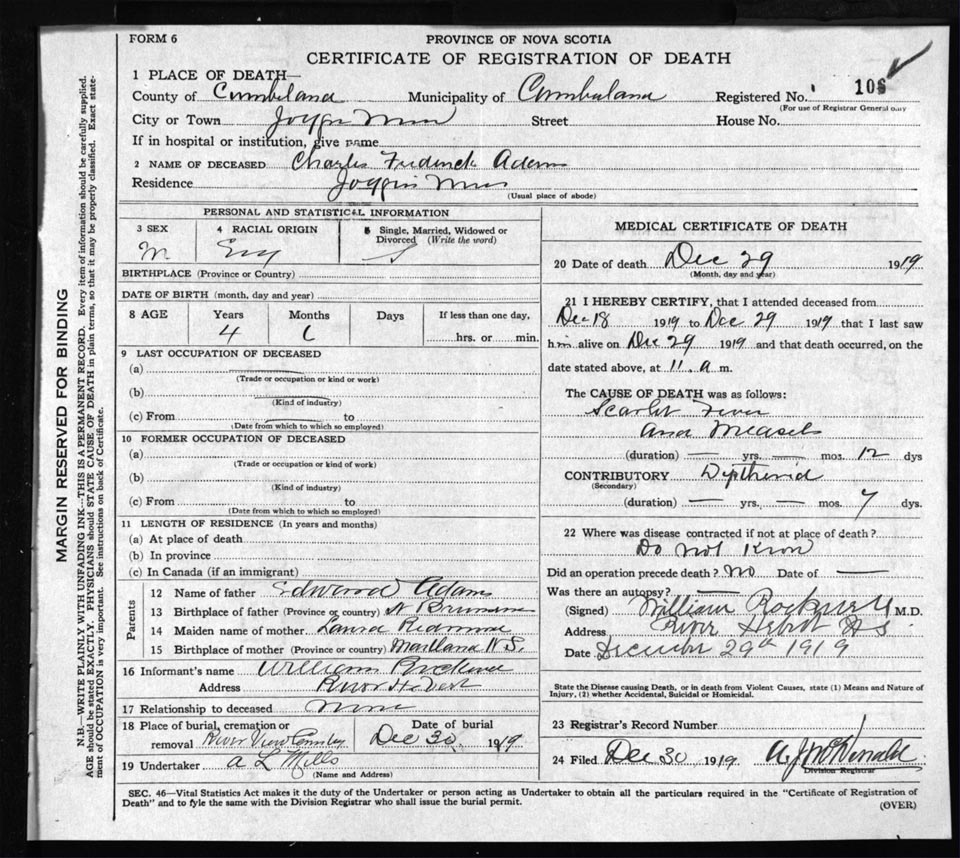 FORM 6
PROVINCE OF NOVA SCOTIA
CERTIFICATE OF REGISTRATION OF DEATH
1 PLACE OF DEATH—
County of Cumberland Municipality of Cumberland Registered No. 106
(For use of Registrar General only
City or Town Joggin Mines Street House No.
If in hospital or institution, give name
2 NAME OF DECEASED Charles Frederick Adams
Residence Joggin Mines
(Usual place of abode)
PERSONAL AND STATISTICAL INFORMATION
3 SEX 4 RACIAL ORIGIN 5 Single, Married, Widowed or Divorced (Write the word)
M Eng S
BIRTHPLACE (Province or Country)
DATE OF BIRTH (month, day and year)
8 AGE Years Months Days If less than one day,
4 6 hrs. or min.
9 LAST OCCUPATION OF DECEASED
(a)
(Trade or occupation or kind or work)
(b)
(Kind of industry)
(c) From to
(Date from which to which so employed)
10 FORMER OCCUPATION OF DECEASED
(a)
(Trade or occupation or kind of work)
(b)
(Kind of industry)
(c) From to
(Date from which to which so employed)
11 LENGTH OF RESIDENCE (In years and months)
(a) At place of death
(b) In province
(c) In Canada (if an immigrant)
Parents
12 Name of father Edward Adams
13 Birthplace of father (Province or country) N Brunswic
14 Maiden name of mother Laura
15 Birthplace of mother (Province or country) Maitland N.S.
16 Informant's name William Rockwell
Address River Hebert
17 Relationship to deceased None
18 Place of burial, cremation or removal River View Cemetery Date of burial Dec 30 1919
19 Undertaker A L Mills
(Name and Address)
MEDICAL CERTIFICATE OF DEATH
20 Date of death Dec 29 1919
(Month, day and year)
21 I HEREBY CERTIFY, that I attended deceased from
Dec 18 1919 to Dec 29 1919 that I last saw
him alive on Dec 29 1919 and that death occurred, on the
date stated above, at 11. a m.
The CAUSE OF DEATH was as follows:
Scarlet Fever
and Measels
(duration) — yrs. — mos. 12 dys
CONTRIBUTORY Diptheria
(Secondary)
(duration) — yrs. — mos. 7 dys.
22 Where was disease contracted if not at place of death?
Do not know
Did an operation precede death? No Date of —
Was there an autopsy? —
(Signed) William Rockwell M.D.
Address River Hebert N S
Date December 29th 1919
State the Disease causing Death, or in death from Violent Causes, state (1) Means and Nature of
Injury, (2) whether Accidental, Suicidal or Homicidal.
23 Registrar's Record Number
24 Filed Dec 30 1919. A. J. McDonald
Division Registrar
SEC. 46—Vital Statistics Act makes it the duty of the Undertaker or person acting as Undertaker to obtain all the particulars required in the "Certificate of Registration of
Death" and to fyle the same with the Division Registrar who shall issue the burial permit.
(OVER)
MARGIN RESERVED FOR BINDING
N.B.—WRITE PLAINLY WITH UNFADING INK—THIS IS A PERMANENT RECORD. Every item of information should be carefully supplied.
AGE should be stated EXACTLY. PHYSICIANS should STATE CAUSE OF DEATH in plain terms, so that it may be properly classified. Exact state-
ment of OCCUPATION is very important. See instructions on back of Certificate.